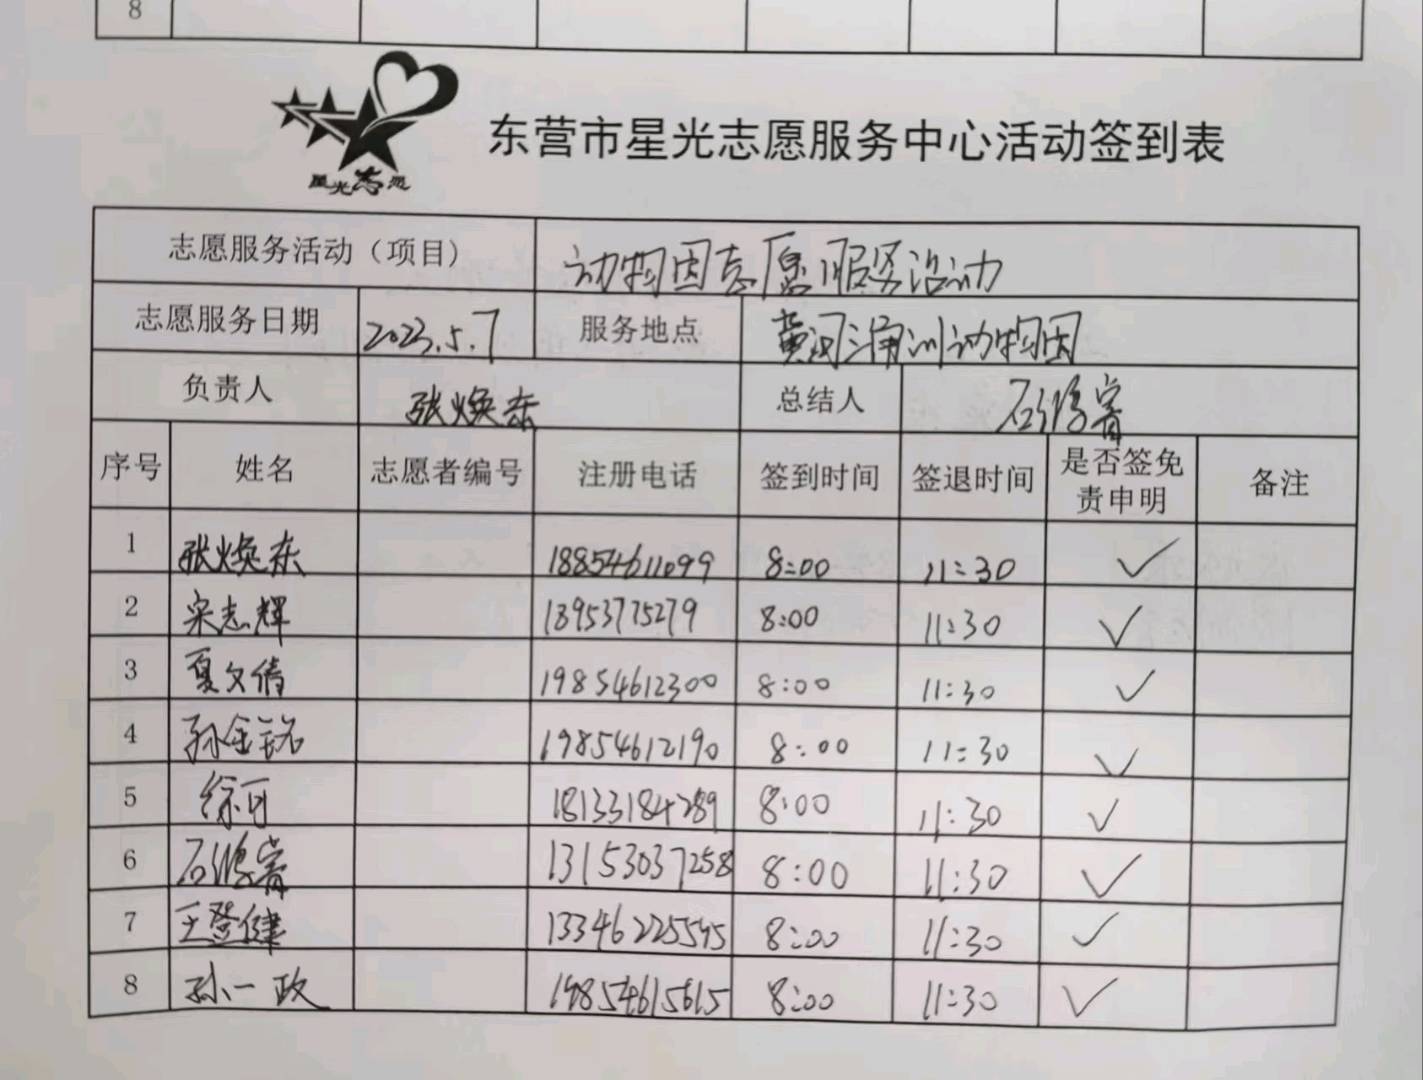 8
东营市星光志愿服务中心活动签到表
星光志愿
志愿服务活动（项目） 动物园志愿服务活动
志愿服务日期 2023.5.7 服务地点 黄河三角洲动物园
负责人 张焕东 总结人
序号 姓名 志愿者编号 注册电话 签到时间 签退时间 是否签免责申明 备注
1 张焕东 18854611099 8:00 11:30 ✓
2 宋志辉 8:00 11:30 ✓
3 夏文倩 19854612300 8:00 11:30 ✓
4 孙金铭 19854612190 8:00 11:30 ✓
5 徐可 18133184289 8:00 11:30 ✓
6 13153037258 8:00 11:30 ✓
7 王登健 13346225545 8:00 11:30 ✓
8 孙一政 19854615615 8:00 11:30 ✓